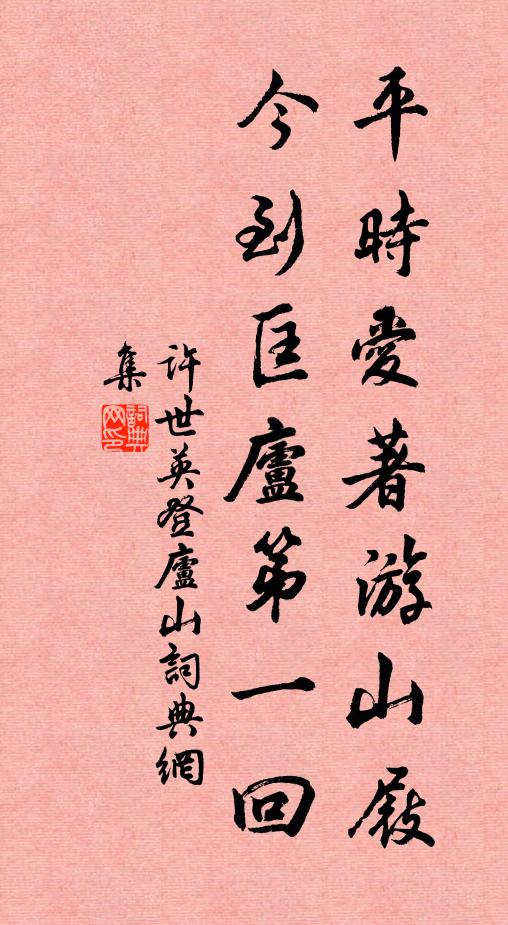 平時愛著游山屐
今到匡廬第一回
許世英登廬山詞典網
集
詞典網印